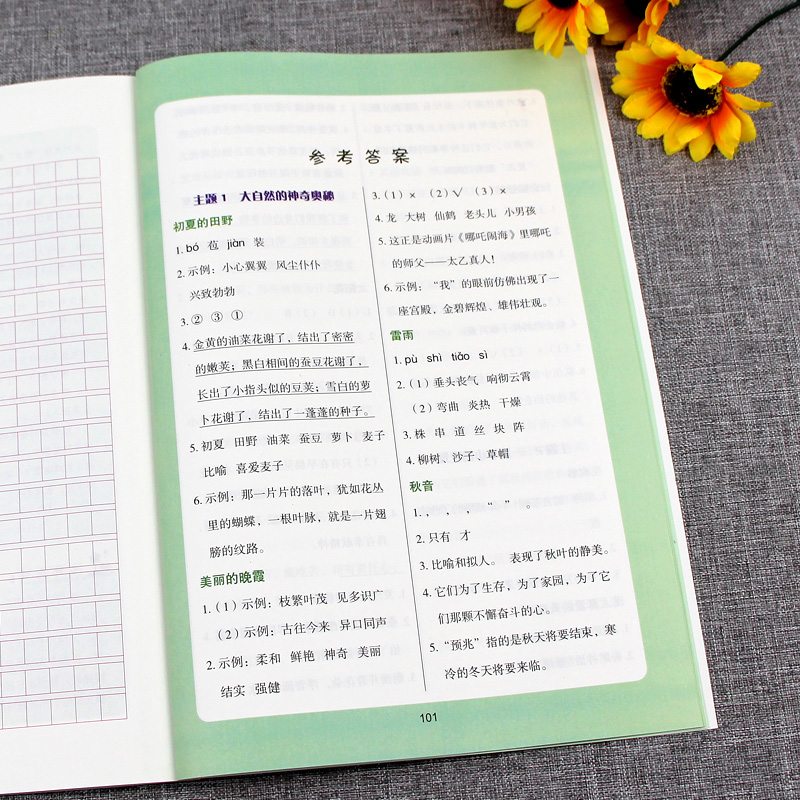 参考答案
主题1 大自然的神奇奥秘
初夏的田野
1. bó 苞 jiàn 装
2. 示例：小心翼翼 风尘仆仆
兴致勃勃
3. ② ③ ①
4. 金黄的油菜花谢了，结出了密密
的嫩荚；黑白相间的蚕豆花谢了，
长出了小指头似的豆荚；雪白的萝
卜花谢了，结出了一蓬蓬的种子。
5. 初夏 田野 油菜 蚕豆 萝卜 麦子
比喻 喜爱麦子
6. 示例：那一片片的落叶，犹如花丛
里的蝴蝶，一根叶脉，就是一片翅
膀的纹路。
美丽的晚霞
1.（1）示例：枝繁叶茂 见多识广
（2）示例：古往今来 异口同声
2. 示例：柔和 鲜艳 神奇 美丽
结实 强健
3.（1）× （2）√ （3）×
4. 龙 大树 仙鹤 老头儿 小男孩
5. 这正是动画片《哪吒闹海》里哪吒
的师父——太乙真人！
6. 示例：“我”的眼前仿佛出现了一
座宫殿，金碧辉煌、雄伟壮观。
雷雨
1. pù shì tiāo sì
2.（1）垂头丧气 响彻云霄
（2）弯曲 炎热 干燥
3. 株 串 道 丝 块 阵
4. 柳树、沙子、草帽
秋音
1. ， ， ， “ ” 。
2. 只有 才
3. 比喻和拟人。 表现了秋叶的静美。
4. 它们为了生存，为了家园，为了它
们那颗不懈奋斗的心。
5. “预兆”指的是秋天将要结束，寒
冷的冬天将要来临。
101